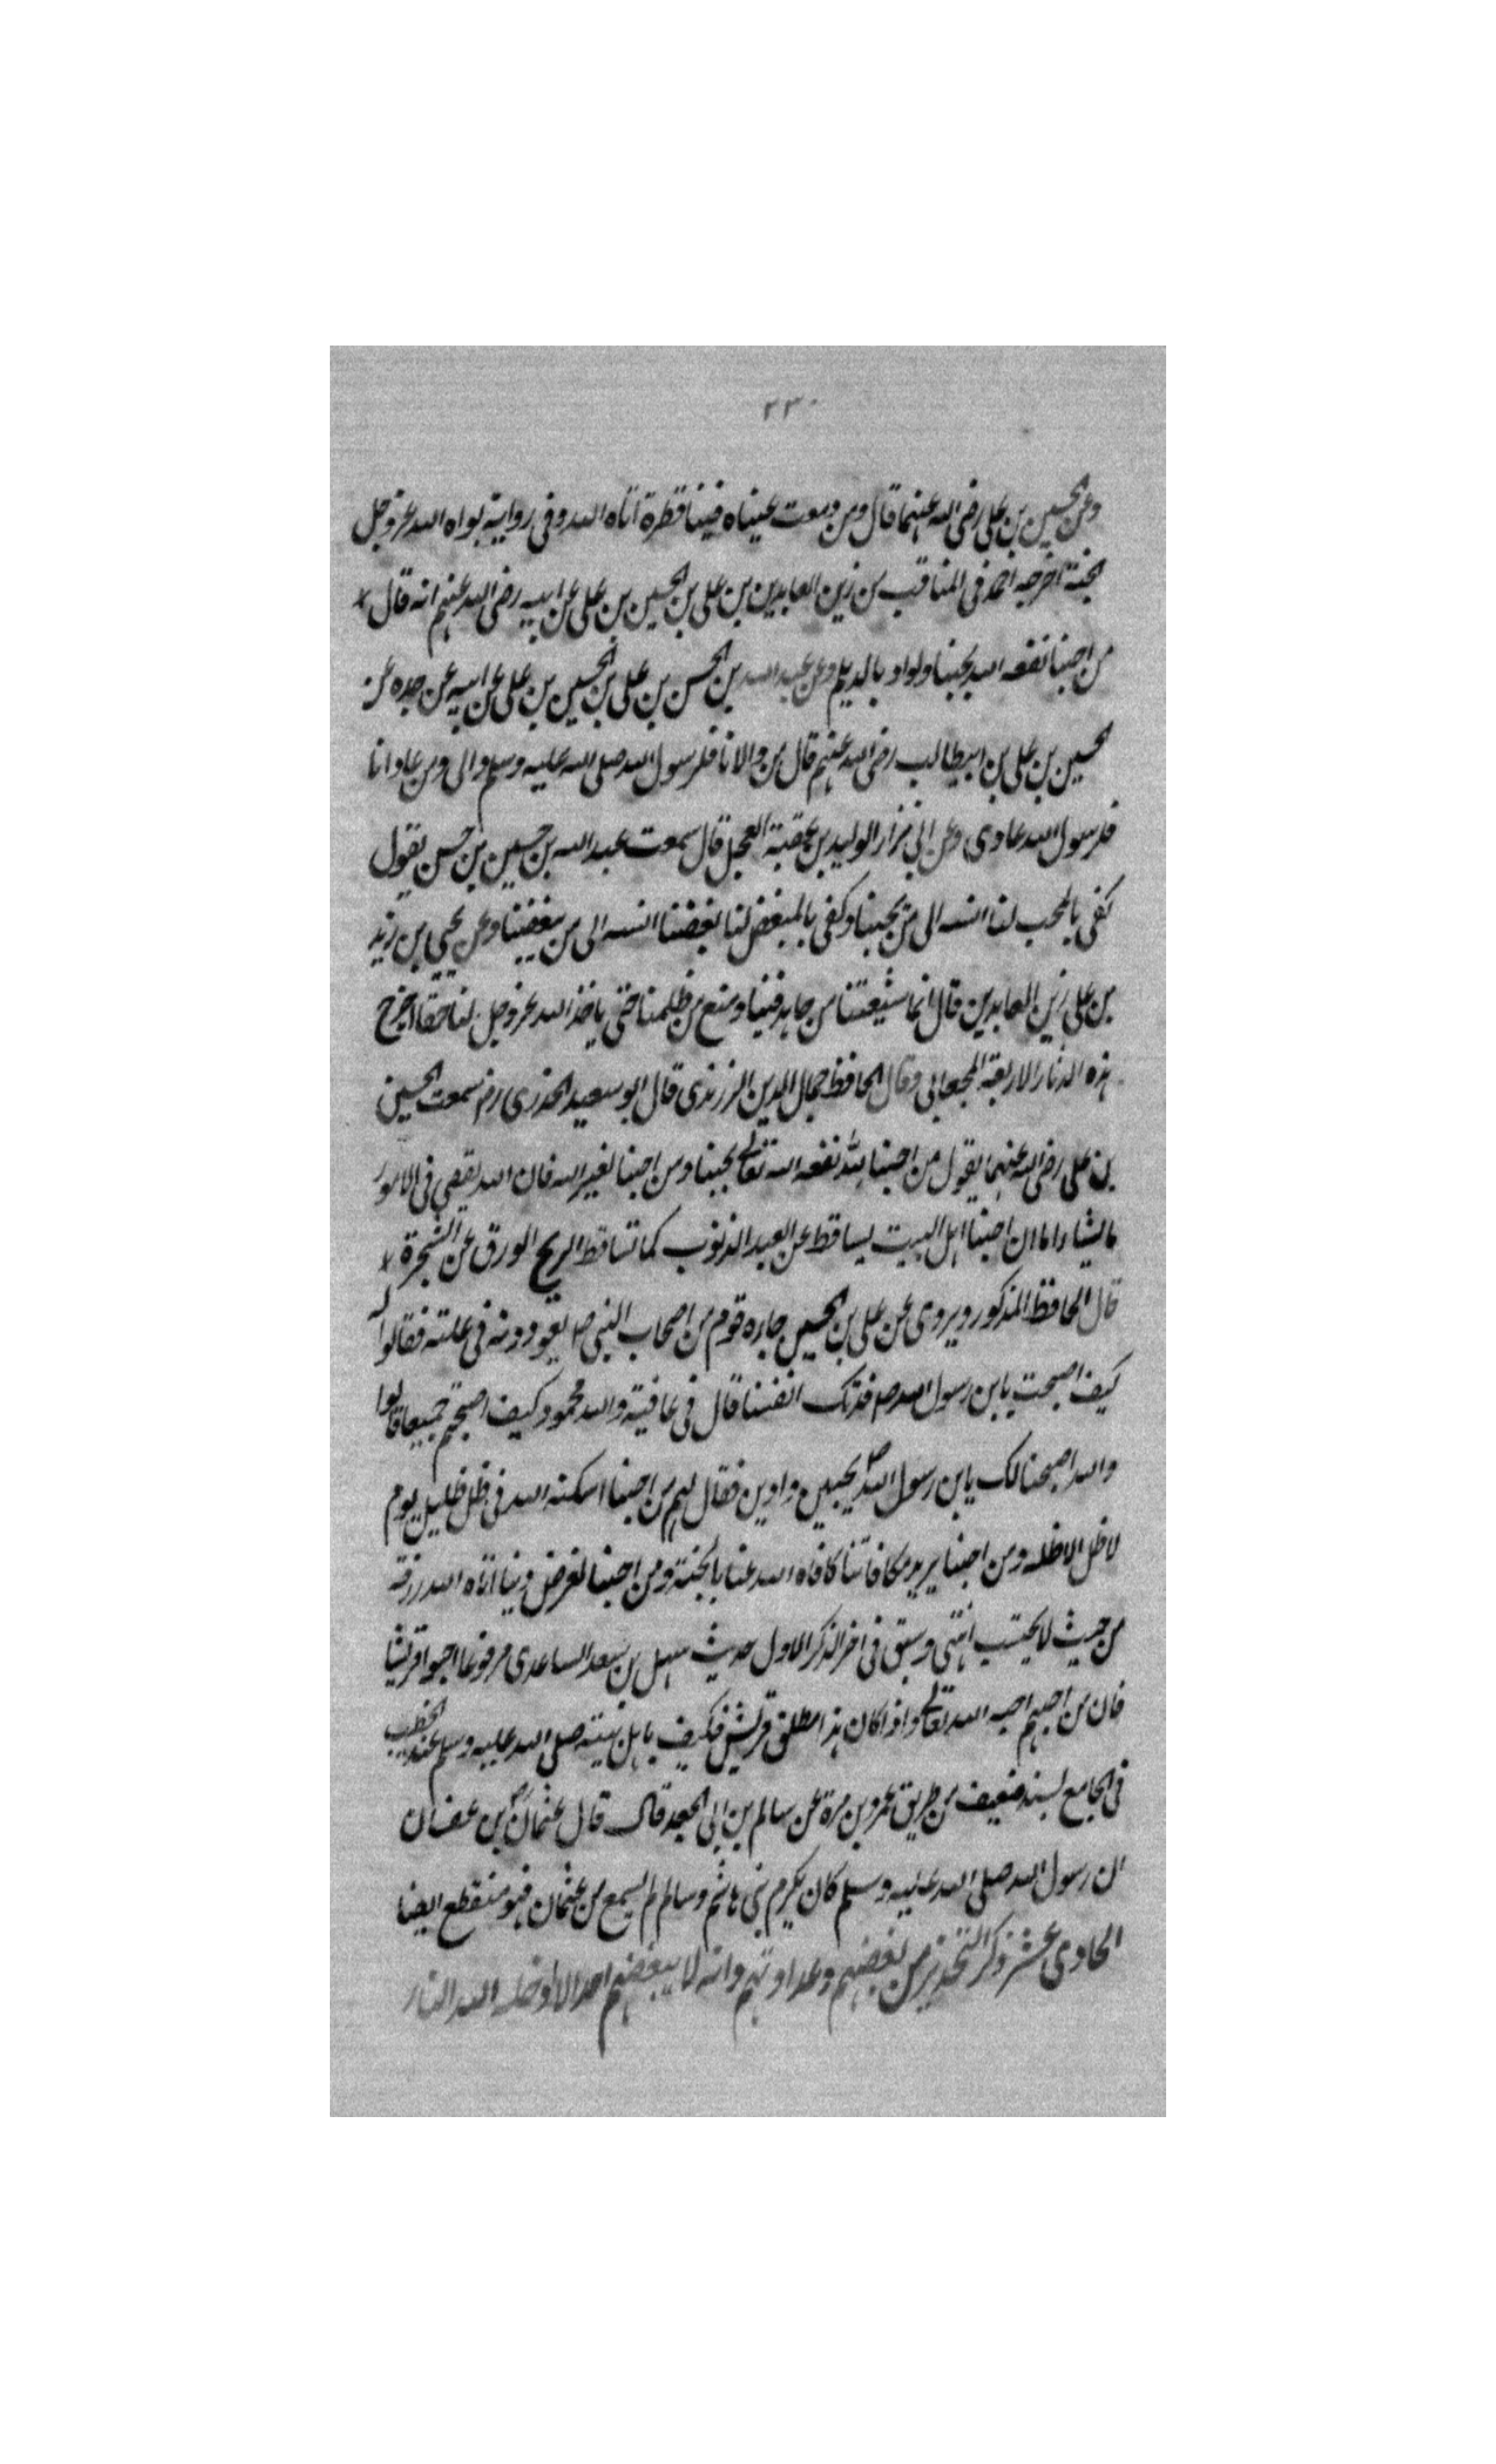 ۲۳۰
وعن الحسين بن علی رضی الله عنهما قال ومن دمعت عيناه فينا قطرة اتاه الله وفی رواية بواه الله عز وجل
الجنة اخرجه احمد فی المناقب عن زين العابدين بن علی بن الحسين بن علی عن ابيه رضی الله عنهم انه قال
من احبنا نفعه الله بحبنا ولو او بالديلم وعن عبد الله بن الحسن بن علی بن الحسين بن علی عن ابيه عن جده عن
الحسين بن علی بن ابيطالب رضی الله عنهم قال من والانا فلرسول الله صلی الله عليه وسلم والی ومن عادانا
فلرسول الله عادی وعن ابی نزار الوليد بن عقبة العجل قال سمعت عبد الله بن حسين بن حسن يقول
كفی بالمحب لنا انسه الی من يحبنا وكفی بالمبغض لنا بغضنا انسه الی من يبغضنا وعن يحيی بن زيد
بن علی زين العابدين قال انما شيعتنا من جاهد فينا ومنع من ظلمنا حتی ياخذ الله عز وجل لنا حقنا اخرج
هذه الاثار الاربعة الجعابی وقال الحافظ جمال الدين الزرندی قال ابو سعيد الخدری رض سمعت الحسين
بن علی رضی الله عنهما يقول من احبنا لله نفعه الله تعالی بحبنا ومن احبنا لغير الله فان الله يقضی فی الامور
ما يشاء اما ان احبنا اهل البيت يساقط عن العبد الذنوب كما تساقط الريح الورق عن الشجرة
قال الحافظ المذكور ويروی عن علی بن الحسين جاءه قوم من اصحاب النبی ص يعودونه فی علته فقالوا له
كيف اصبحت يابن رسول الله ص فدتك انفسنا قال فی عافية والله محمود كيف اصبحتم جميعا قالوا
والله اصبحنا لك يابن رسول الله ص محبين وادين فقال لهم من احبنا اسكنه الله فی ظل ظليل يوم
لا ظل الا ظله ومن احبنا يريد مكافاتنا كافاه الله عنا بالجنة ومن احبنا لغرض دنيا اتاه الله رزقه
من حيث لا يحتسب انتهی وسبق فی اخر الذكر الاول حديث سهل بن سعد الساعدی مرفوعا احبوا قريشا
فان من احبهم احبه الله تعالی واذا كان هذا مطلق قريش فكيف باهل بيته صلی الله عليه وسلم عند الخطيب
فی الجامع بسند ضعيف من طريق عمرو بن مرة عن سالم بن ابی الجعد قال قال عثمان بن عفان
ان رسول الله صلی الله عليه وسلم كان يكرم بنی هاشم وسالم لم يسمع من عثمان فهو منقطع ايضا
الحادی عشر ذكر التحذير من بغضهم وعداوتهم وانه لا يبغضهم احد الا ادخله الله النار